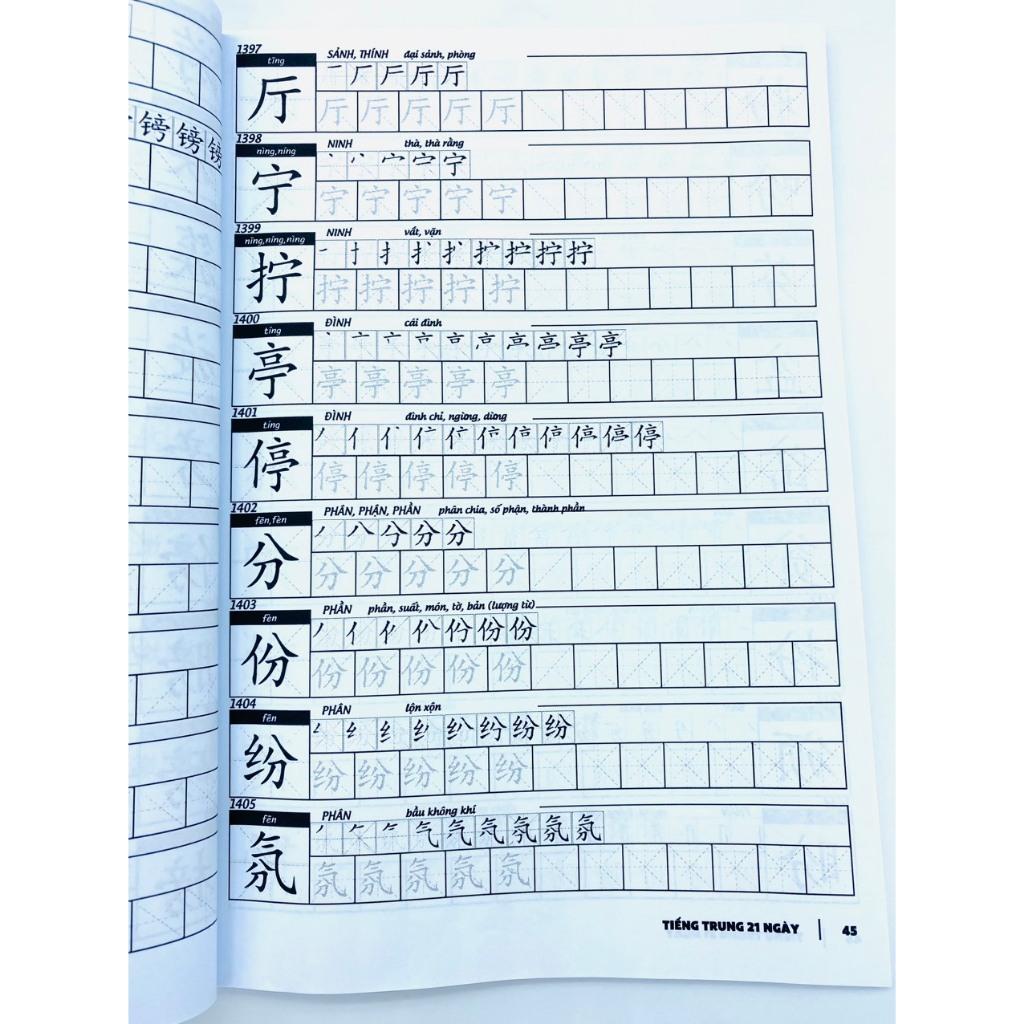 镑 镑 镑
1397
tīng
SẢNH, THÍNH đại sảnh, phòng
厅
厅 厅
厅 厅 厅 厅 厅
1398
nìng,níng
NINH thà, thà rằng
宁
宁
宁 宁 宁 宁 宁
1399
nǐng,níng,nìng
NINH vắt, vặn
拧
拧 拧
拧 拧 拧 拧 拧
1400
tíng
ĐÌNH cái đình
亭
亭 亭
亭 亭 亭 亭 亭
1401
tíng
ĐÌNH đình chỉ, ngừng, dừng
停
停
停 停 停 停 停
1402
fēn,fèn
PHÂN, PHẬN, PHẦN phân chia, số phận, thành phần
分
分 分
分 分 分 分 分
1403
fèn
PHẦN phần, suất, món, tờ, bản (lượng từ)
份
份 份
份 份 份 份 份
1404
fēn
PHÂN lộn xộn
纷
纷 纷
纷 纷 纷 纷 纷
1405
fēn
PHÂN bầu không khí
氛
氛 氛
氛 氛 氛 氛 氛
TIẾNG TRUNG 21 NGÀY 45